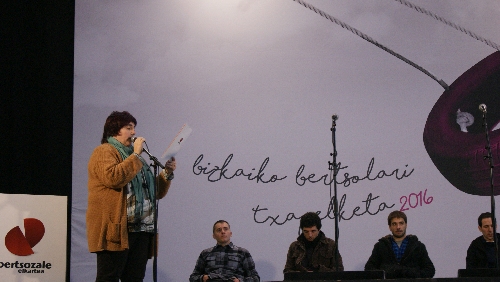 bizkaiko bertsolari
txapelketa 2016
bertsozale
elkartea